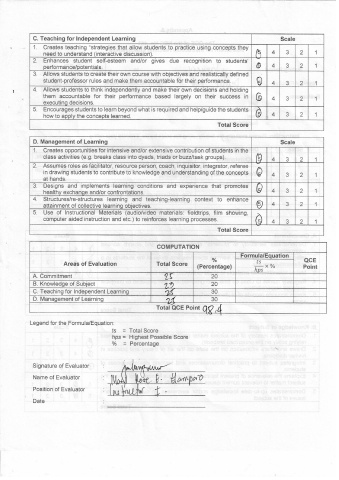 C. Teaching for Independent Learning Scale
1. Creates teaching strategies that allow students to practice using concepts they need to understand (interactive discussion). 5 4 3 2 1
2. Enhances student self-esteem and/or gives due recognition to students' performance/potentials. 5 4 3 2 1
3. Allows students to create their own course with objectives and realistically defined student-professor rules and make them accountable for their performance. 5 4 3 2 1
4. Allows students to think independently and make their own decisions and holding them accountable for their performance based largely on their success in executing decisions. 5 4 3 2 1
5. Encourages students to learn beyond what is required and help/guide the students how to apply the concepts learned. 5 4 3 2 1
Total Score
D. Management of Learning Scale
1. Creates opportunities for intensive and/or extensive contribution of students in the class activities (e.g. breaks class into dyads, triads or buzz/task groups). 5 4 3 2 1
2. Assumes roles as facilitator, resource person, coach, inquisitor, integrator, referee in drawing students to contribute to knowledge and understanding of the concepts at hands. 5 4 3 2 1
3. Designs and implements learning conditions and experience that promotes healthy exchange and/or confrontations. 5 4 3 2 1
4. Structures/re-structures learning and teaching-learning context to enhance attainment of collective learning objectives. 5 4 3 2 1
5. Use of Instructional Materials (audio/video materials: fieldtrips, film showing, computer aided instruction and etc.) to reinforces learning processes. 5 4 3 2 1
Total Score
COMPUTATION
Areas of Evaluation Total Score % (Percentage) Formula/Equation ts/hps × % QCE Point
A. Commitment 25 20
B. Knowledge of Subject 23 20
C. Teaching for Independent Learning 25 30
D. Management of Learning 25 30
Total QCE Point 98.4
Legend for the Formula/Equation:
ts = Total Score
hps = Highest Possible Score
% = Percentage
Signature of Evaluator :
Name of Evaluator : Rose
Position of Evaluator : Instructor I
Date :